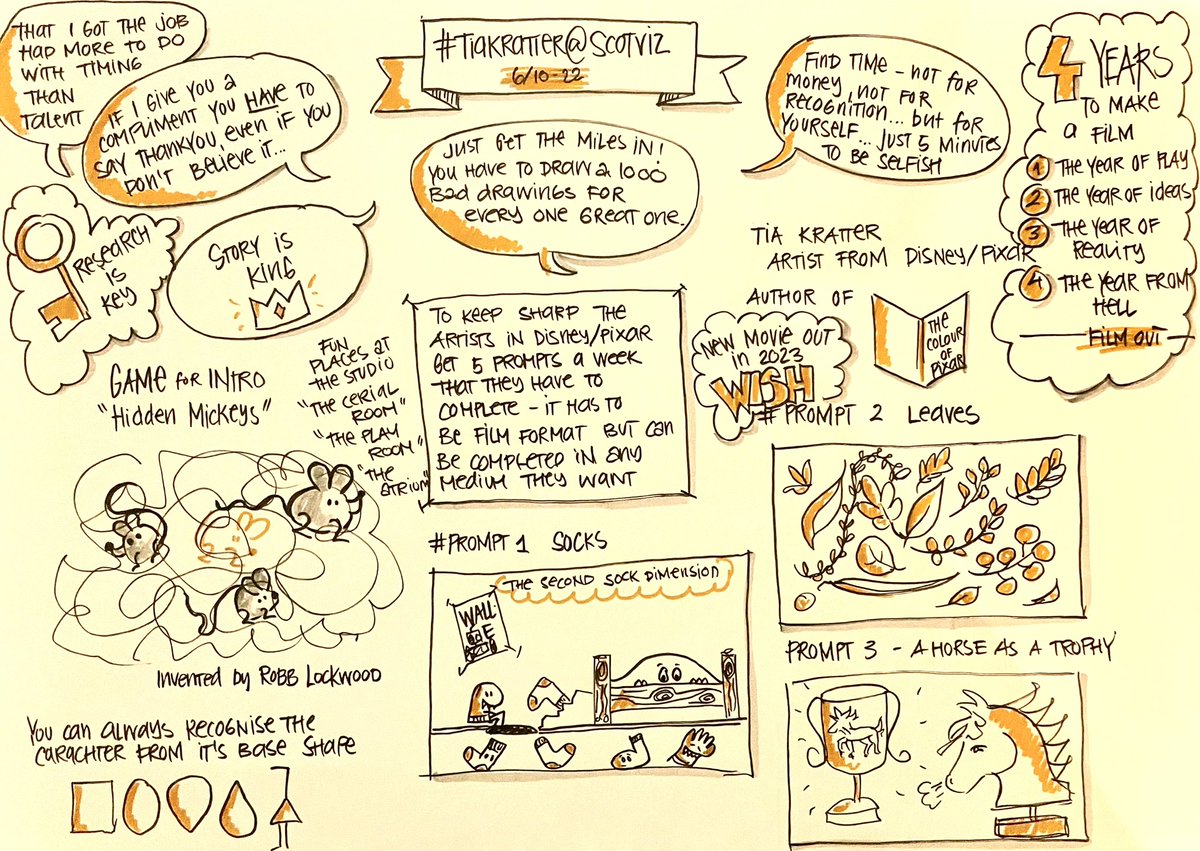 THAT I GOT THE JOB
HAD MORE TO DO
WITH TIMING
THAN
TALENT
IF I GIVE YOU A
COMPLIMENT YOU HAVE TO
SAY THANKYOU, EVEN IF YOU
DON'T BELIEVE IT...
#TIAKRATTER@SCOTVIZ
6/10-22
JUST GET THE MILES IN!
YOU HAVE TO DRAW A 1000
BAD DRAWINGS FOR
EVERY ONE GREAT ONE.
FIND TIME - NOT FOR
MONEY, NOT FOR
RECOGNITION... BUT FOR
YOURSELF... JUST 5 MINUTES
TO BE SELFISH
4 YEARS
TO MAKE
A FILM
1 THE YEAR OF PLAY
2 THE YEAR OF IDEAS
3 THE YEAR OF
REALITY
4 THE YEAR FROM
HELL
FILM OUT
RESEARCH
IS
KEY
STORY IS
KING
TIA KRATTER
ARTIST FROM DISNEY/PIXAR
AUTHOR OF
THE
COLOUR
OF
PIXAR
NEW MOVIE OUT
IN 2023
WISH
GAME FOR INTRO
"HIDDEN MICKEYS"
INVENTED BY ROBB LOCKWOOD
FUN
PLACES AT
THE STUDIO
"THE CERIAL
ROOM"
"THE PLAY
ROOM"
"THE
ATRIUM"
TO KEEP SHARP THE
ARTISTS IN DISNEY/PIXAR
GET 5 PROMPTS A WEEK
THAT THEY HAVE TO
COMPLETE - IT HAS TO
BE FILM FORMAT BUT CAN
BE COMPLETED IN ANY
MEDIUM THEY WANT
#PROMPT 1 SOCKS
THE SECOND SOCK DIMENSION
WALL
E
#PROMPT 2 LEAVES
PROMPT 3 - A HORSE AS A TROPHY
YOU CAN ALWAYS RECOGNISE THE
CARACHTER FROM IT'S BASE SHAPE